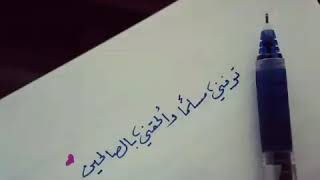 توفني مسلمًا وألحقني بالصالحين